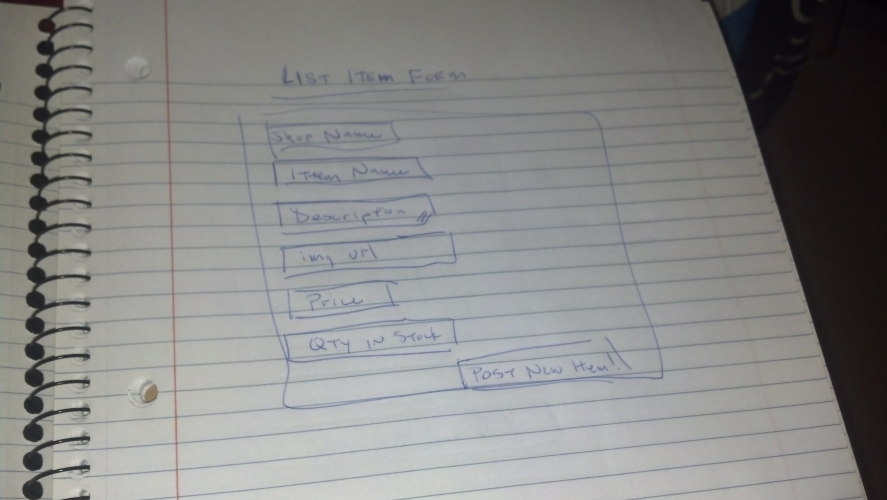 LIST ITEM FORM
Shop Name
Item Name
Description
img url
Price
QTY IN Stock
Post New Item!